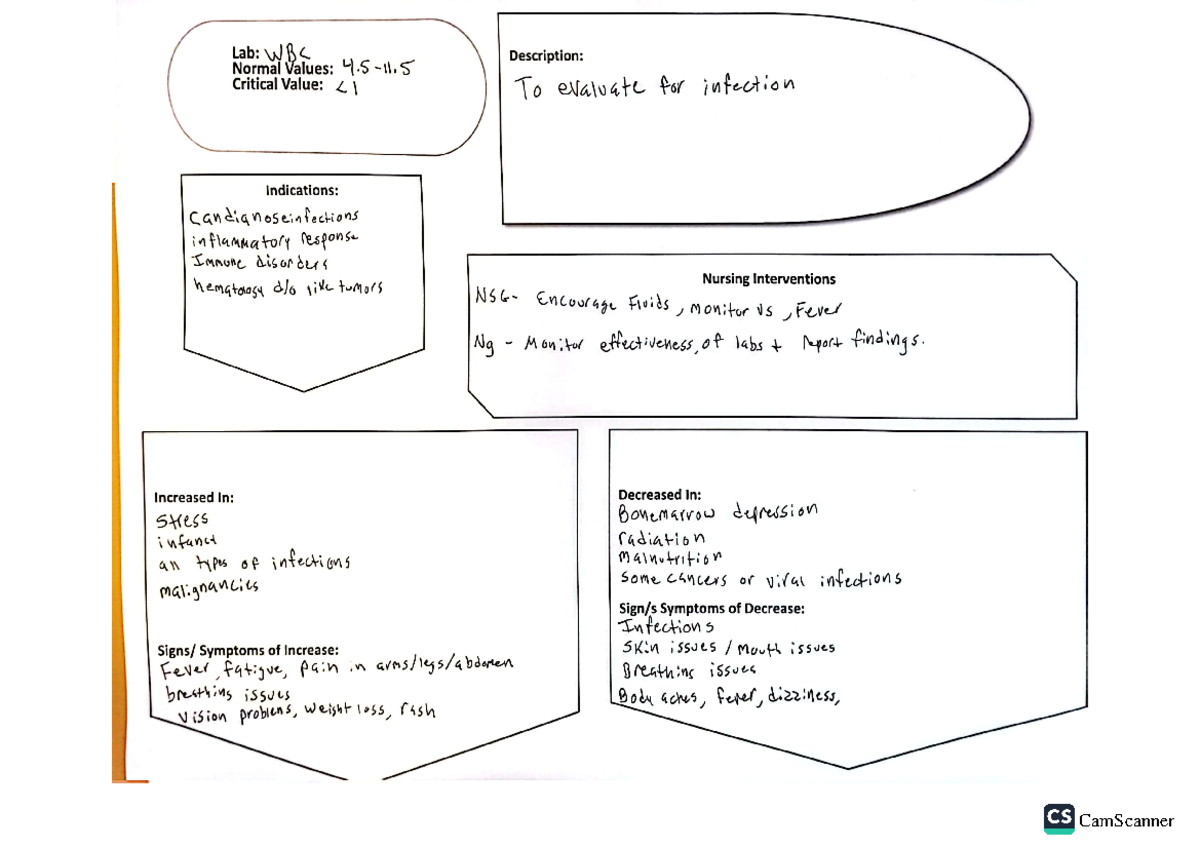 Lab: WBC
Normal Values: 4.5-11.5
Critical Value: <1
Description:
To evaluate for infection
Indications:
Candianoseinfections
inflammatory response
Immune disorders
hematology d/o like tumors
Nursing Interventions
NSG- Encourage Fluids, monitor vs, Fever
Ng - Monitor effectiveness, of labs + report findings.
Increased In:
Stress
infanct
all types of infections
malignancies
Signs/ Symptoms of Increase:
Fever, fatigue, pain in arms/legs/abdomen
breathing issues
Vision problems, weight loss, rash
Decreased In:
Bonemarrow depression
radiation
Malnutrition
Some cancers or viral infections
Sign/s Symptoms of Decrease:
Infections
Skin issues / Mouth issues
Breathing issues
Body aches, fever, dizziness,
CS CamScanner